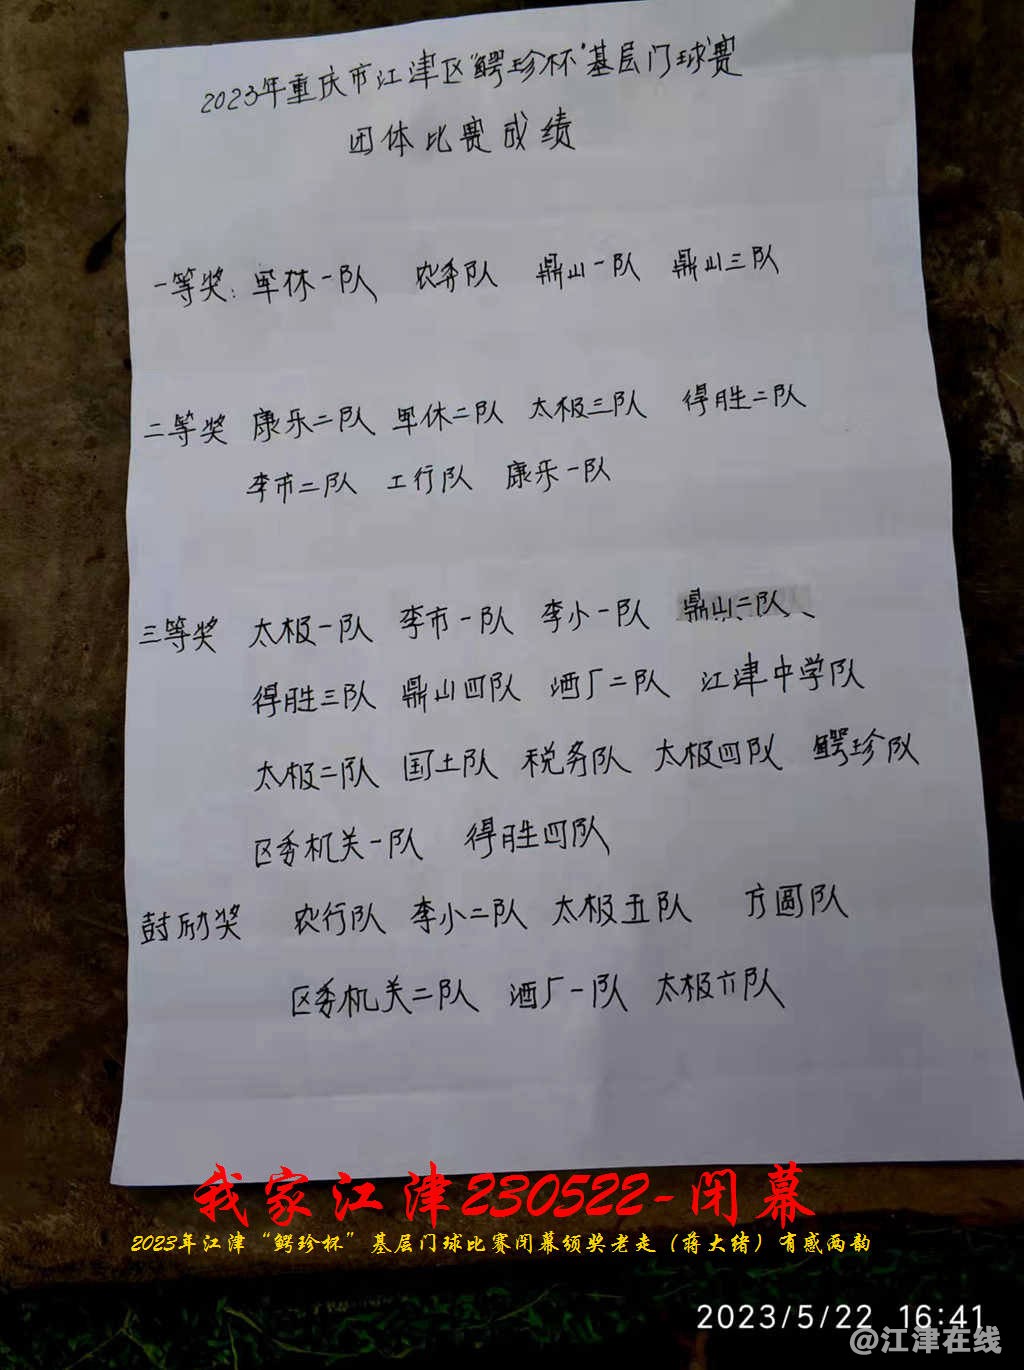 2023年重庆市江津区“鳄珍杯”基层门球赛
团体比赛成绩
一等奖: 军休一队 农委队 鼎山一队 鼎山三队
二等奖 康乐二队 军休二队 太极三队 得胜二队
李市二队 工行队 康乐一队
三等奖 太极一队 李市一队 李小一队 鼎山二队、
得胜三队 鼎山四队 酒厂二队 江津中学队
太极二队 国土队 税务队 太极四队 鳄珍队
区委机关一队 得胜四队
鼓励奖 农行队 李小二队 太极五队 方圆队
区委机关二队 酒厂一队 太极六队
我家江津230522-闭幕
2023年江津“鳄珍杯”基层门球比赛闭幕颁奖老走（蒋大绪）有感两韵
2023/5/22 16:41
@江津在线